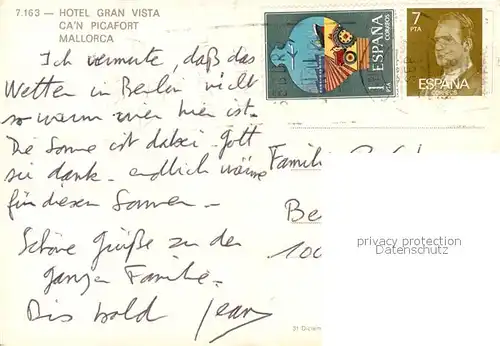 7.163 — HOTEL GRAN VISTA
CA'N PICAFORT
MALLORCA
7
PTA
ESPAÑA
CORREOS
1
PTA
ESPAÑA
CORREOS
Ich vermute, daß das
Wetter in Berlin nicht
so warm wie hier ist.
Die Sonne ist dabei - Gott
sei dank - endlich wärme
für diesen Sommer -
Schöne Grüße zu der
ganzen Familie.
Bis bald Jean
Famili
Be
100
privacy protection
www.ansichtskartenversand.com